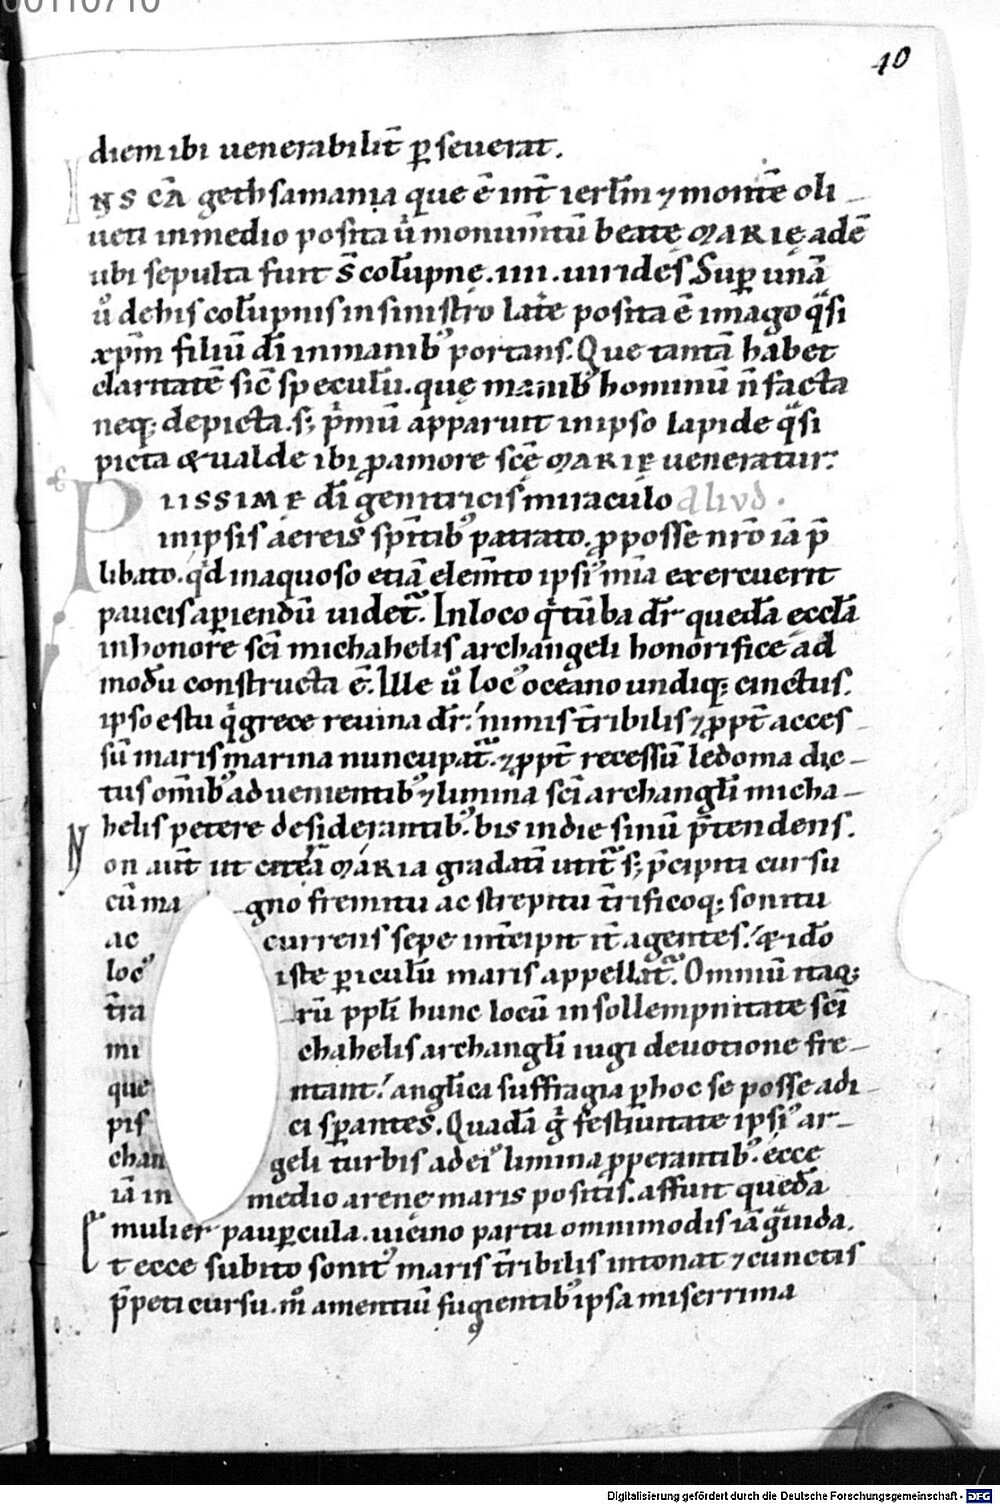 00110710
40
diem ibi uenerabilit̄ ꝑseuerat.
IN SC̄A gethsamania que ē int̄ ierl̄m ⁊ monte͂ oli-
ueti in medio posita ů monum̄tū beatę MARIĘ adē
ubi sepulta fuit s̄ colūpnę .IIII. uirides. Suꝑ unā
ů de his colūpnis in sinistro latere posita ē imago qͣsi
xp̄m filiū dı̄ in manibꝰ portans. Que tantā habet
claritatē sic̄ speculū. quę manibꝰ hominū n̄ facta
neqꝫ depicta. sꝫ pͥmū apparuit in ipso lapide qͣsi
picta & ualde ibi ꝓ amore scē MARIĘ ueneratur.
PIISSIMĘ dı̄ genitricis miraculo Aliud.
in ipsis aereis spı̄tibꝰ patrato. ꝓ posse nr̄o iā p̄
libato. qͥd in aquoso etiā elem̄to ipsiꝰ mı̄a exercuerit
paucis aꝑiendū uidet᷑. In loco qͥ tūba dr̄ quedā eccl̄a
in honore scı̄ michahelis archangeli honorifice ad
modū constructa ē. Ille ů locꝰ oceano undiqꝫ cinctus.
ipso estu qͥ grece reuma dr̄. nimis t̄ribilis ⁊ ꝓpt̄ acces-
sū maris marina nuncupat᷑. ⁊ ꝓpt̄ recessū ledoma dic-
tus om̄ibꝰ aduenientibꝰ ⁊ limina scı̄ archangl̄i micha-
helis petere desiderantibꝰ. bis in die sinū p̄tendens.
Non aut̄ ut cet̄a maria gradatī utit᷑ sꝫ p̄cipiti cursu
cū ma gno fremitu ac strepitu t̄rificoqꝫ sonitu
ac currens sepe int̄cipit it̄ agentes. & ido̅
locꝰ iste ꝑiculū maris appellat᷑. Omniū itaqꝫ
t̄ra rū ppl̄i hunc locū in sollempnitate scı̄
mi chahelis archangl̄i iugi deuotione fre-
que ntant. angl̄ica suffragia ꝑ hoc se posse adi-
pis ci sꝑantes. Quadā gͥ festiuitate ipsiꝰ ar-
chan geli turbis ad eiꝰ limina ꝓꝑantibꝰ. ecce
iā in medio arene maris positis. affuit quedā
mulier pauꝑcula. uicino partu omnimodis iā gͣuida.
Et ecce subito sonitꝰ maris t̄ribilis intonat ⁊ cunctis
p̄peti cursu. mͦ amentiū fugientibꝰ ipsa miserrima
Digitalisierung gefördert durch die Deutsche Forschungsgemeinschaft - DFG